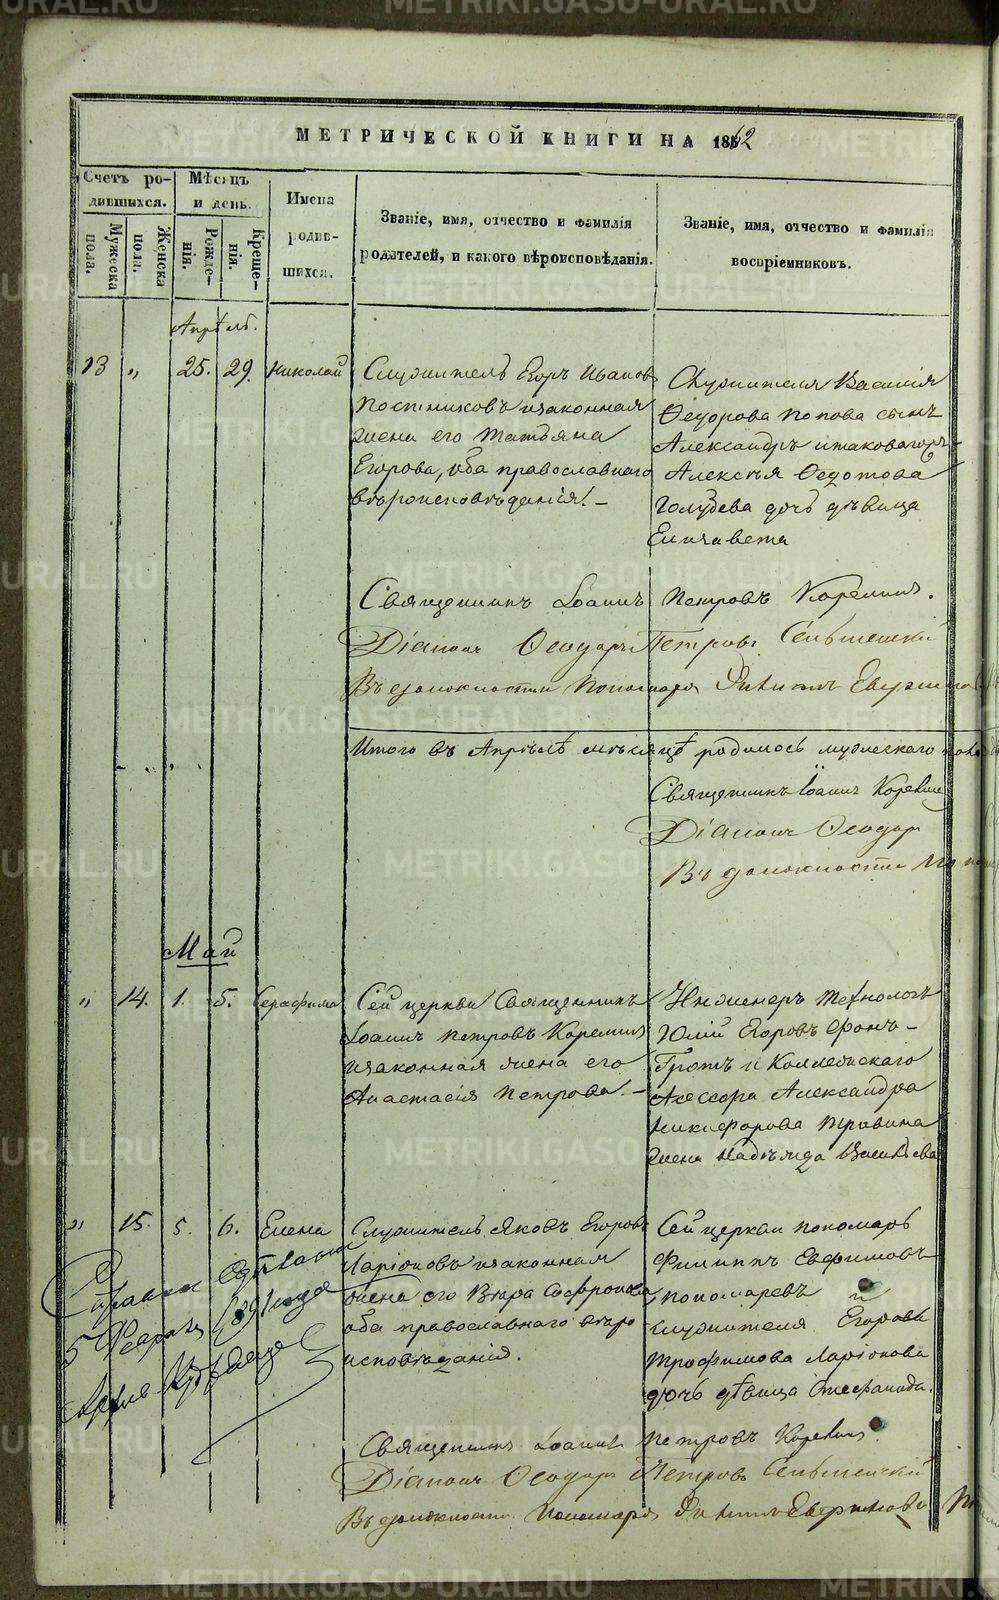 МЕТРИЧЕСКОЙ КНИГИ НА 1862
Счетъ ро-
дившихся.
Мѣсяцъ
и день.
Имена
родив-
шихся.
Званіе, имя, отчество и фамилія
родителей, и какого вѣроисповѣданія.
Званіе, имя, отчество и фамилія
воспріемниковъ.
Мужеска
пола.
Женска
пола.
Рожде-
нія.
Креще-
нія.
Апрѣль.
13 „ 25. 29. Николай
Служитель Егоръ Иванов
Постниковъ и законная
жена его Татьяна
Егорова, оба православнаго
вѣроисповѣданія. –
Служителя Василія
Ѳедорова Попова сынъ
Александръ и таковагожъ
Алексѣя Ѳедотова
Голубева дочь дѣвица
Елизавета
Священникъ Іоаннъ Петровъ Корелинъ.
Діаконъ Ѳеодоръ Петровъ
Въ должности Пономаря Филиппъ
Итого въ Апрѣлѣ мѣсяцѣ родилось мужескаго
Священникъ Іоаннъ Корелин
Діаконъ Ѳеодоръ
Въ должности
Май
„ 14. 1. 5. Серафима
Сей церкви Священникъ
Іоаннъ Петровъ Корелинъ
и законная жена его
Анастасія Петрова. –
Инженеръ Технологъ
Юлій Егоровъ Фонъ-
Гротъ и Коллежскаго
Асессора Александра
Никифорова
жена Надѣжда
„ 15. 5. 6. Елена
Служитель Яковъ Егоровъ
Ларіоновъ и законная
жена его Вѣра Софронова
оба православнаго вѣро
исповѣданія.
Сей церкви пономарь
Филиппъ Евфимовъ
Пономаревъ и
служителя Егорова
Трофимова Ларіонова
дочь дѣвица Стефанида.
Справка
5 Февраля 1891 года
Священникъ Іоаннъ Петровъ Корелинъ
Діаконъ Ѳеодоръ Петровъ
Въ должности Пономаря Филиппъ
METRIKI.GASO-URAL.RU